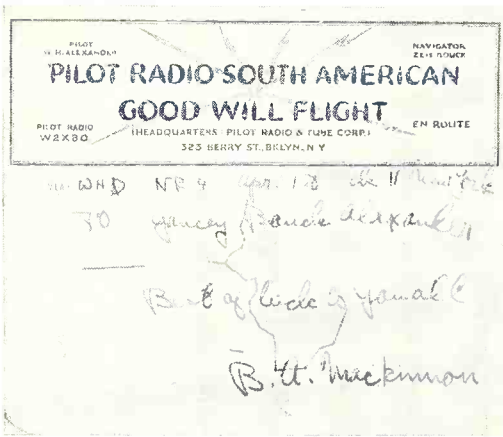 PILOT
W. H. ALEXANDER
NAVIGATOR
ZEH BOUCK
PILOT RADIO SOUTH AMERICAN
GOOD WILL FLIGHT
PILOT RADIO
W2XBO
(HEADQUARTERS PILOT RADIO & TUBE CORP.)
EN ROUTE
323 BERRY ST., BKLYN, N Y
WHD NR 4 Apr. 18 New York
TO Yancey Bouck Alexander
Best of luck to you all
B. U. Mackinnon